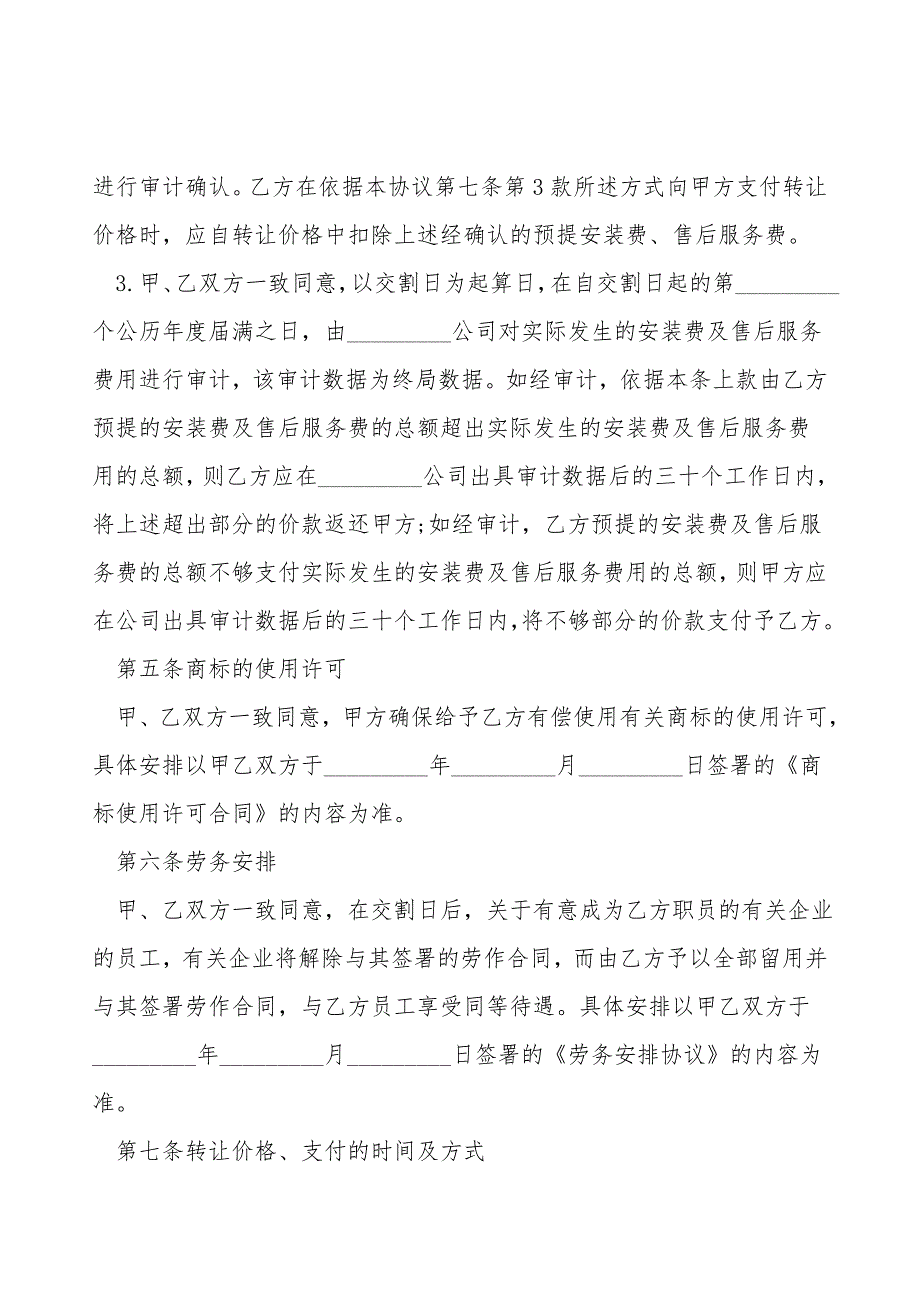 进行审计确认。乙方在依据本协议第七条第3款所述方式向甲方支付转让
价格时，应自转让价格中扣除上述经确认的预提安装费、售后服务费。
3.甲、乙双方一致同意，以交割日为起算日，在自交割日起的第_________
个公历年度届满之日，由_________公司对实际发生的安装费及售后服务
费用进行审计，该审计数据为终局数据。如经审计，依据本条上款由乙方
预提的安装费及售后服务费的总额超出实际发生的安装费及售后服务费
用的总额，则乙方应在_________公司出具审计数据后的三十个工作日内，
将上述超出部分的价款返还甲方;如经审计，乙方预提的安装费及售后服
务费的总额不够支付实际发生的安装费及售后服务费用的总额，则甲方应
在公司出具审计数据后的三十个工作日内，将不够部分的价款支付予乙方。
第五条商标的使用许可
甲、乙双方一致同意，甲方确保给予乙方有偿使用有关商标的使用许可，
具体安排以甲乙双方于_________年_________月_________日签署的《商
标使用许可合同》的内容为准。
第六条劳务安排
甲、乙双方一致同意，在交割日后，关于有意成为乙方职员的有关企业
的员工，有关企业将解除与其签署的劳作合同，而由乙方予以全部留用并
与其签署劳作合同，与乙方员工享受同等待遇。具体安排以甲乙双方于
_________年_________月_________日签署的《劳务安排协议》的内容为
准。
第七条转让价格、支付的时间及方式